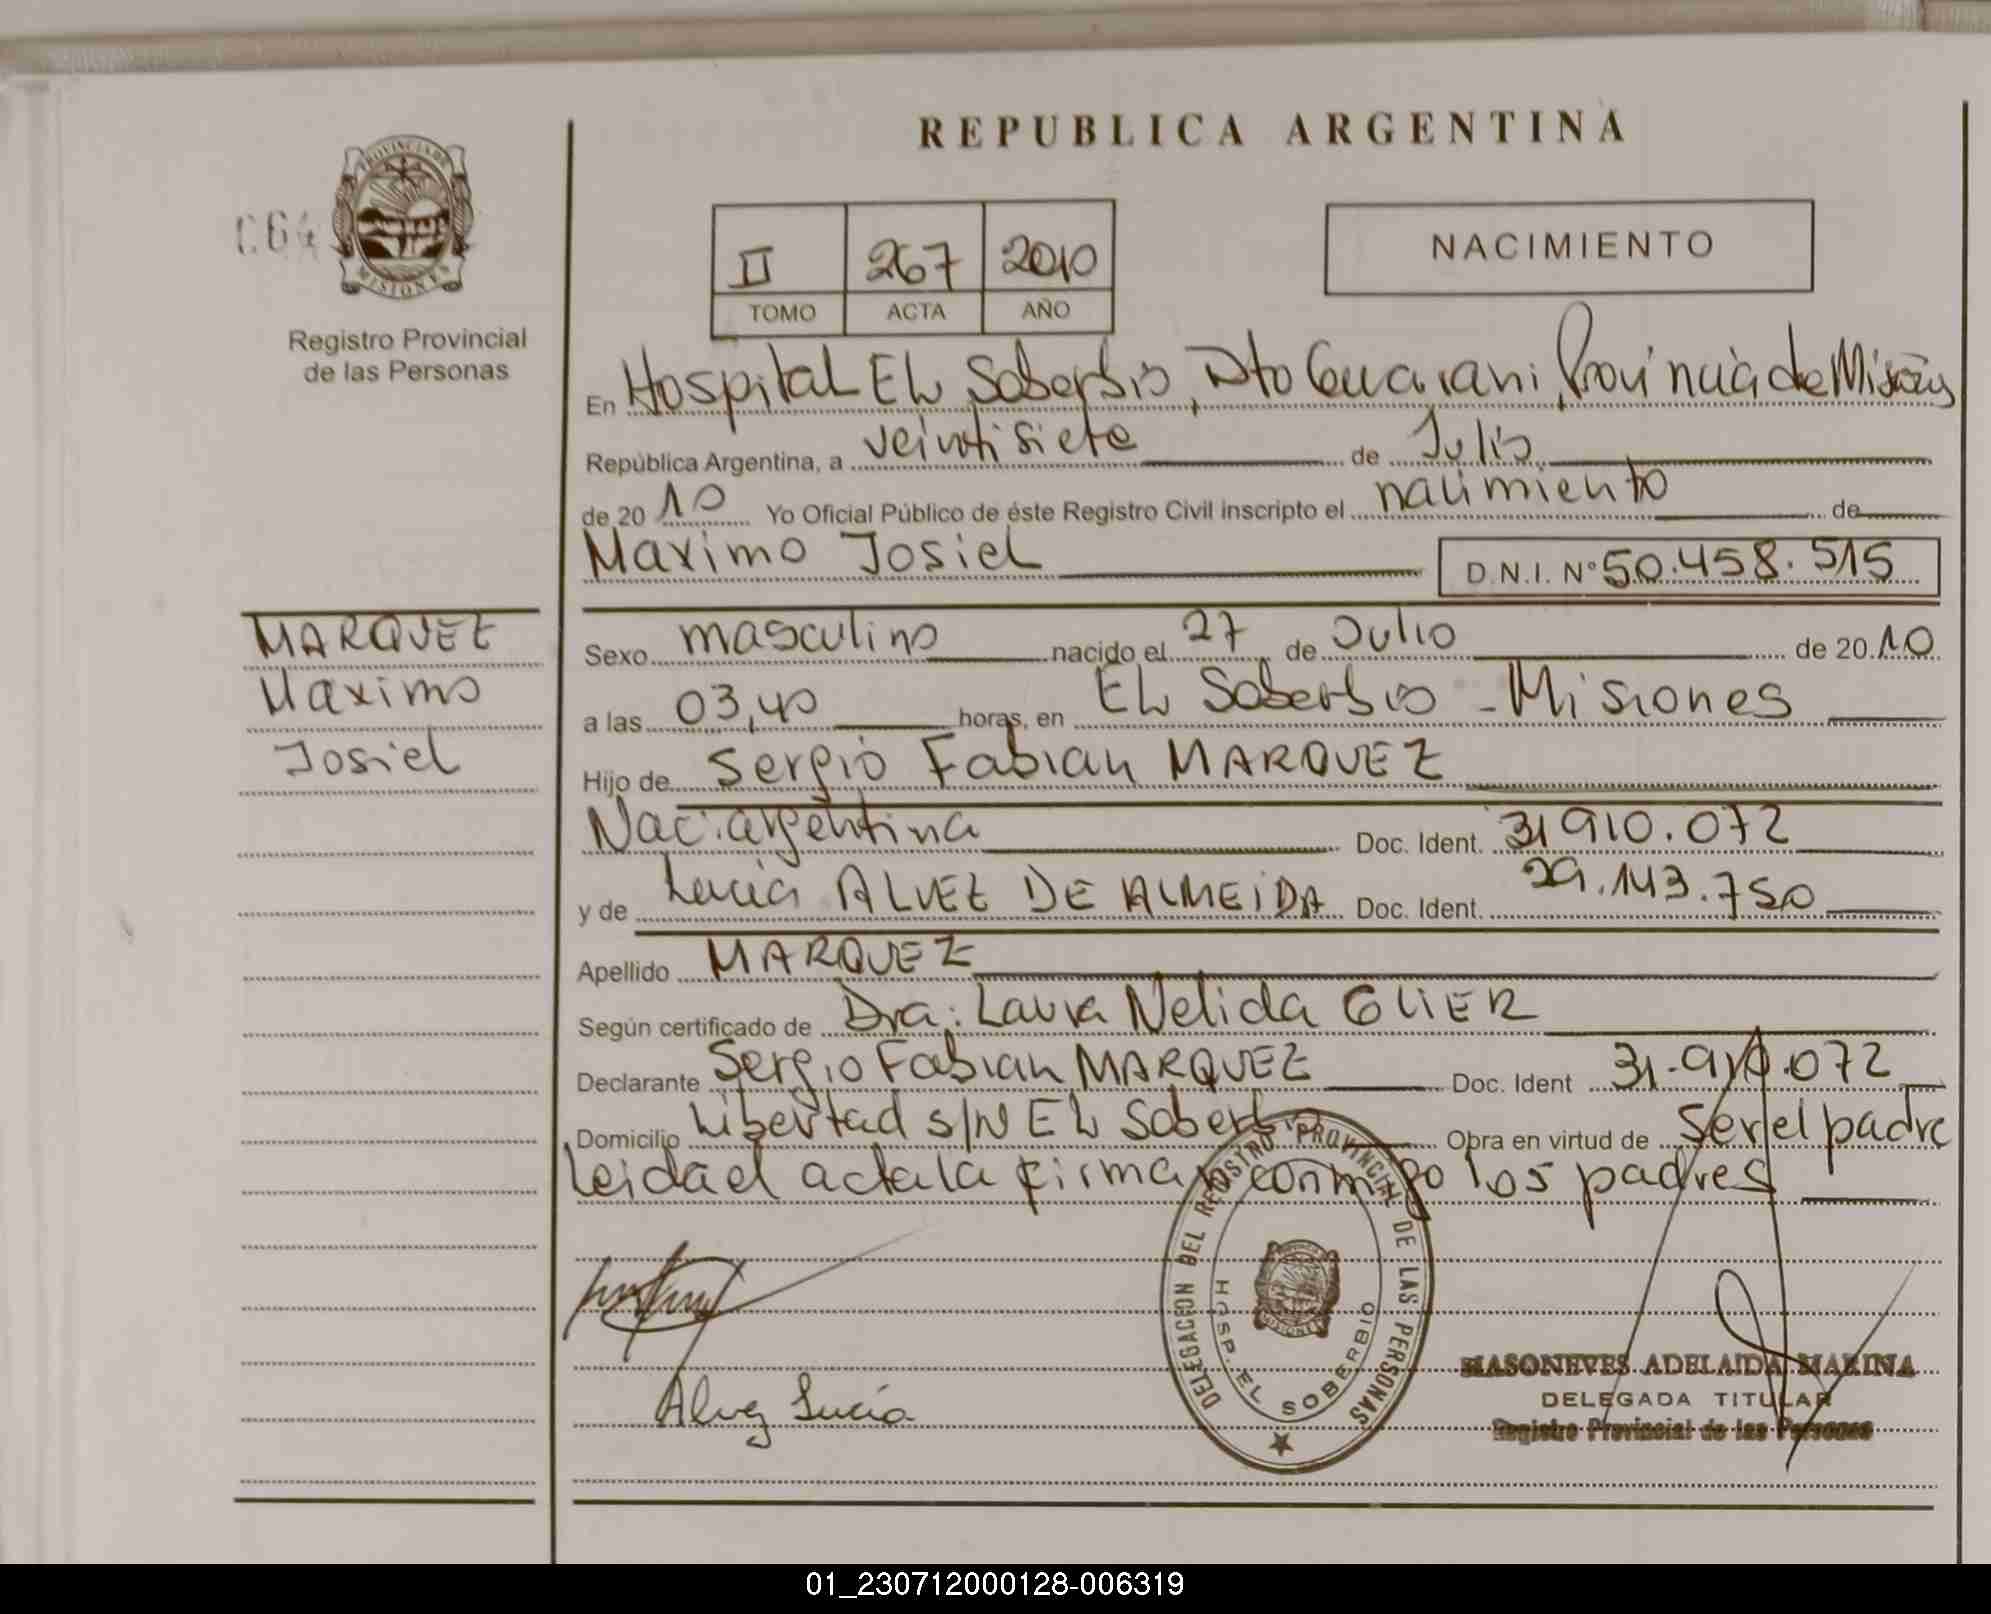 REPUBLICA ARGENTINA
PROVINCIA DE
MISIONES
064
Registro Provincial
de las Personas
II 267 2010
TOMO ACTA AÑO
NACIMIENTO
En Hospital EL Soberbio, Dto Guarani, Provincia de Misiones
República Argentina, a veintisiete de Julio
de 2010 Yo Oficial Público de éste Registro Civil inscripto el nacimiento de
Maximo Josiel D.N.I. N° 50.458.515
MARQUEZ
Maximo
Josiel
Sexo masculino nacido el 27 de Julio de 2010
a las 03,40 horas, en EL Soberbio - Misiones
Hijo de Sergio Fabian MARQUEZ
Nac. argentina Doc. Ident. 31 910.072
y de Lucia ALVEZ DE ALMEIDA Doc. Ident. 29.143.750
Apellido MARQUEZ
Según certificado de Dra. Laura Nelida GLIER
Declarante Sergio Fabian MARQUEZ Doc. Ident 31.910.072
Domicilio Libertad s/N EL Soberbio Obra en virtud de ser el padre
Leida el acta la firman conmigo los padres
Alvez Lucía
DELEGACION DEL REGISTRO PROVINCIAL DE LAS PERSONAS
HOSP. EL SOBERBIO
MASONEVES ADELAIDA MARINA
DELEGADA TITULAR
Registro Provincial de las Personas
01_230712000128-006319